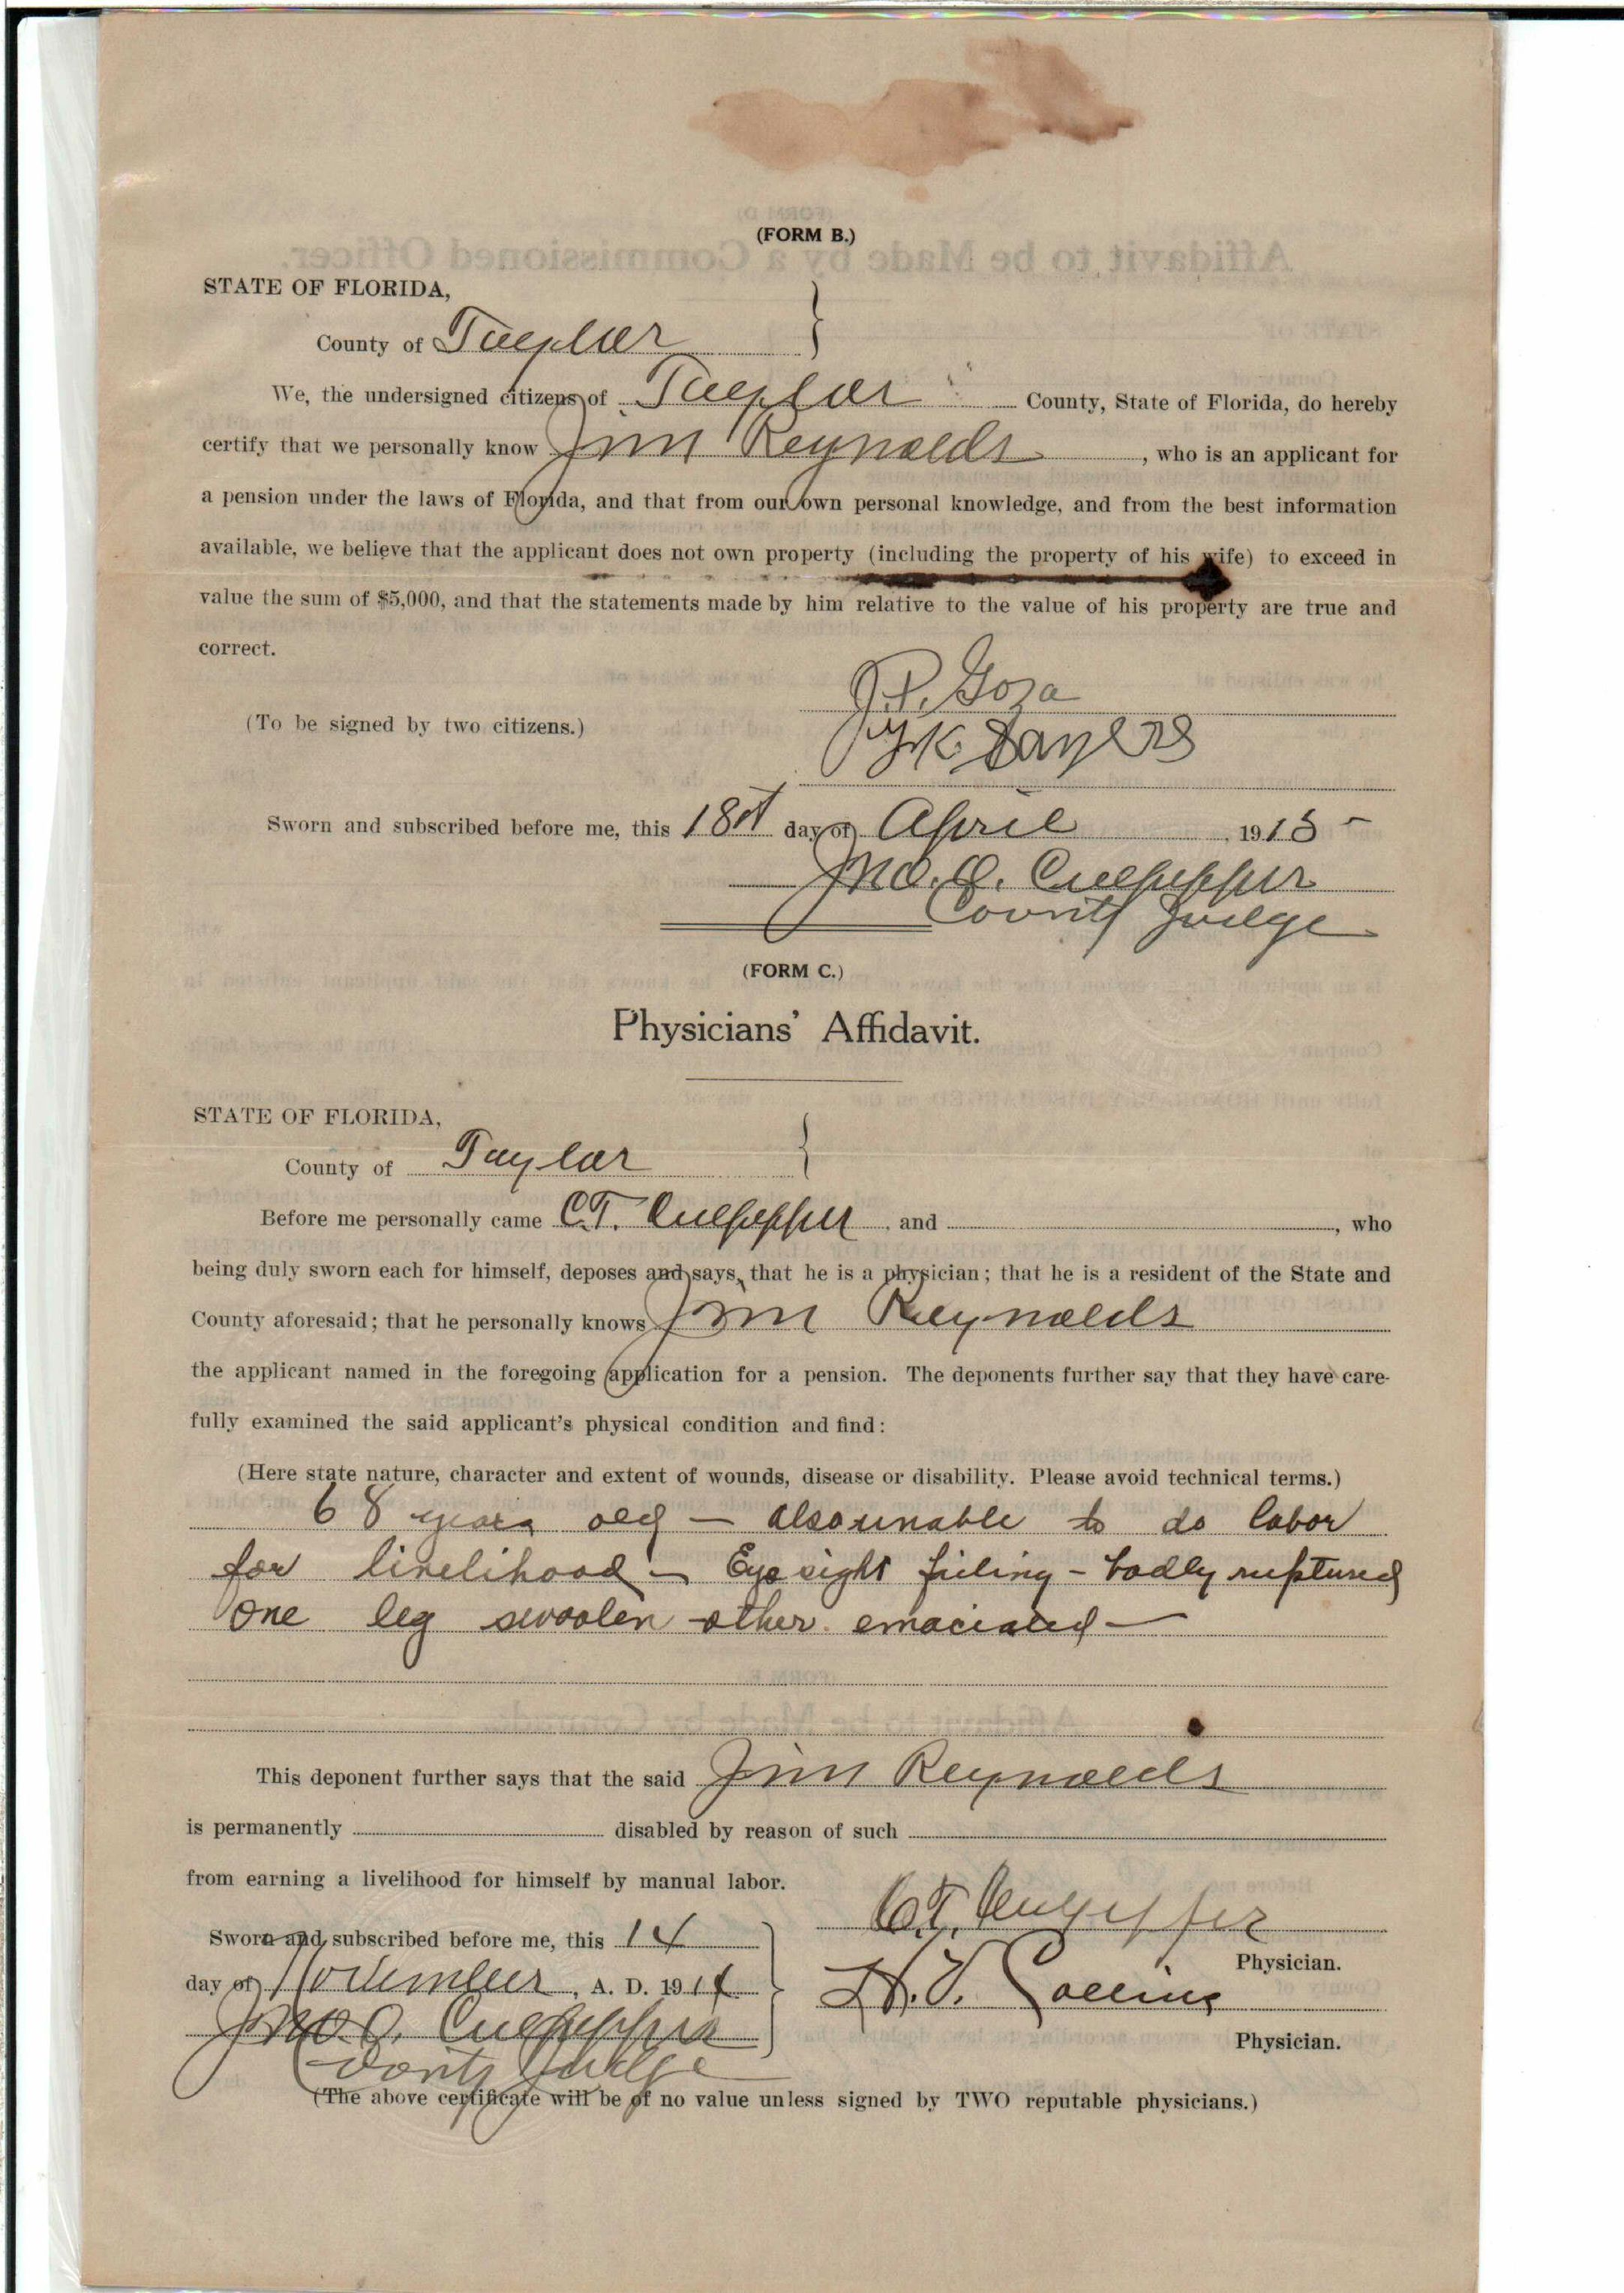 (FORM B.)
STATE OF FLORIDA,
County of Taylor
We, the undersigned citizens of Taylor County, State of Florida, do hereby
certify that we personally know Jim Reynolds, who is an applicant for
a pension under the laws of Florida, and that from our own personal knowledge, and from the best information
available, we believe that the applicant does not own property (including the property of his wife) to exceed in
value the sum of $5,000, and that the statements made by him relative to the value of his property are true and
correct.
J.P. Goza
(To be signed by two citizens.)
Sworn and subscribed before me, this 18th day of April, 1915
Jno. O. Culpepper
County Judge
(FORM C.)
Physicians' Affidavit.
STATE OF FLORIDA,
County of Taylor
Before me personally came C.T. Culpepper and , who
being duly sworn each for himself, deposes and says, that he is a physician; that he is a resident of the State and
County aforesaid; that he personally knows Jim Reynolds
the applicant named in the foregoing application for a pension. The deponents further say that they have care-
fully examined the said applicant's physical condition and find:
(Here state nature, character and extent of wounds, disease or disability. Please avoid technical terms.)
68 years old – also unable to do labor
for livelihood – Eye sight failing – badly ruptured
one leg swoolen – other emaciated –
This deponent further says that the said Jim Reynolds
is permanently disabled by reason of such
from earning a livelihood for himself by manual labor.
C.T. Culpepper
Physician.
Sworn and subscribed before me, this 14
day of November, A. D. 1914
H.V. Collins
Physician.
Jno. O. Culpepper
County Judge
(The above certificate will be of no value unless signed by TWO reputable physicians.)